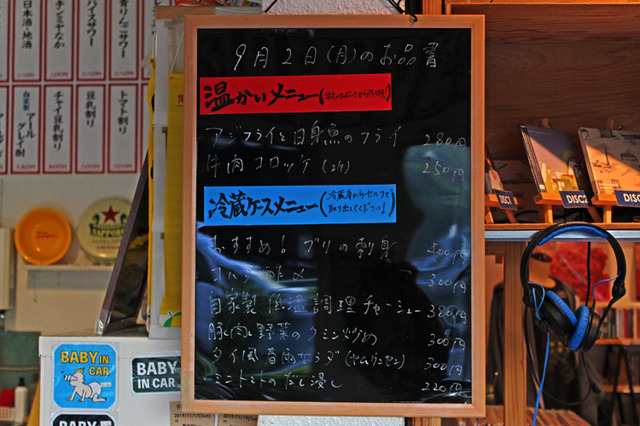 9月2日(月)のお品書
温かいメニュー
アジフライと白身魚のフライ 280円
牛肉コロッケ(2ケ) 250円
冷蔵ケースメニュー(冷蔵庫からセルフで
取り出してください!)
おすすめ! ブリの刺身 500円
コハダ酢〆 300円
自家製 低温調理チャーシュー 380円
豚肉と野菜のクミン炒め 300円
タイ風春雨サラダ(ヤムウンセン) 300円
ミニトマトのだし浸し 220円
青りんごサワー
日本酒・地酒
トマト割り
豆乳割り
チャイ豆乳割り
アールグレイ酎
SAPPORO
BABY IN
CAR
BABY
IN CAR
BABY
DISC2
DISC